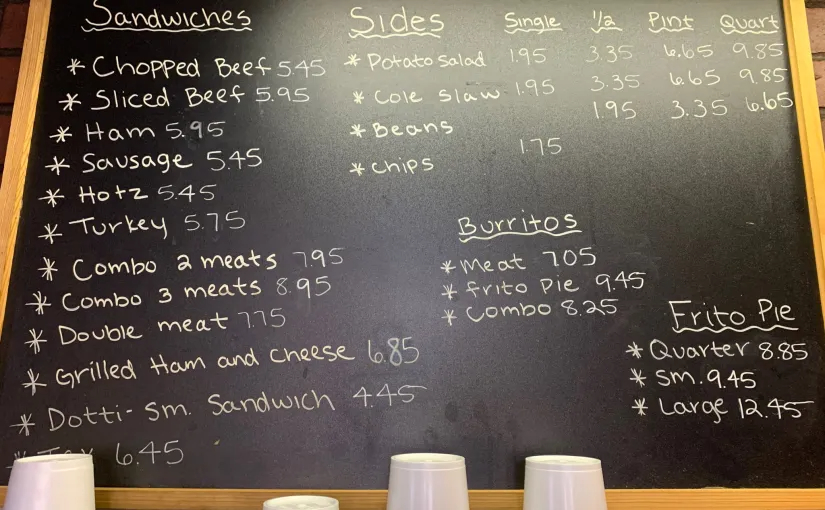 Sandwiches
* Chopped Beef 5.45
* Sliced Beef 5.95
* Ham 5.95
* Sausage 5.45
* Hotz 5.45
* Turkey 5.75
* Combo 2 meats 7.95
* Combo 3 meats 8.95
* Double meat 7.75
* Grilled Ham and cheese 6.85
* Dotti-Sm. Sandwich 4.45
* 6.45
Sides Single 1/2 Pint Quart
* Potato Salad 1.95 3.35 6.65 9.85
* Cole Slaw 1.95 3.35 6.65 9.85
* Beans 1.95 3.35 6.65
* Chips 1.75
Burritos
* Meat 7.05
* Frito Pie 9.45
* Combo 8.25
Frito Pie
* Quarter 8.85
* Sm. 9.45
* Large 12.45